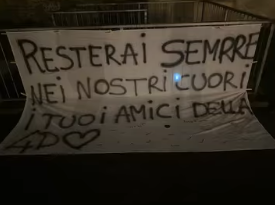 RESTERAI SEMPRE
NEI NOSTRI CUORI
I TUOI AMICI DELLA
4D♡